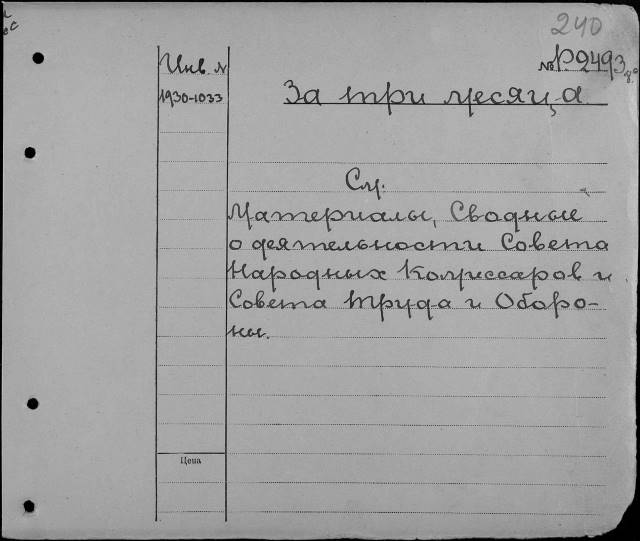 240
№ Р2493
Инв. №
1930-1033
За три месяца
См.
Материалы, Сводные
о деятельности Совета
Народных Комиссаров и
Совета Труда и Оборо-
ны.
Цена